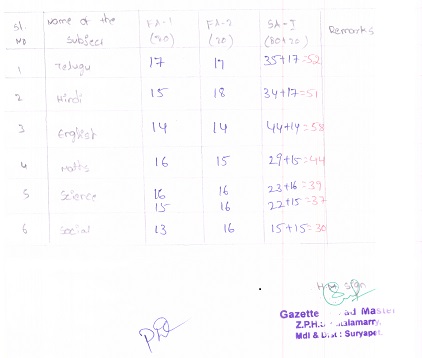 Sl. No Name of the Subject FA-1 (20) FA-2 (20) SA-I (80+20) Remarks
1 Telugu 17 17 35+17=52
2 Hindi 15 18 34+17=51
3 English 14 14 44+14=58
4 Maths 16 15 29+15=44
5 Science 16 16 23+16=39
15 16 22+15=37
6 Social 13 16 15+15=30
H.M sign
Gazette ad Master
Z.P.H.S
Mdl & Dist : Suryapet.